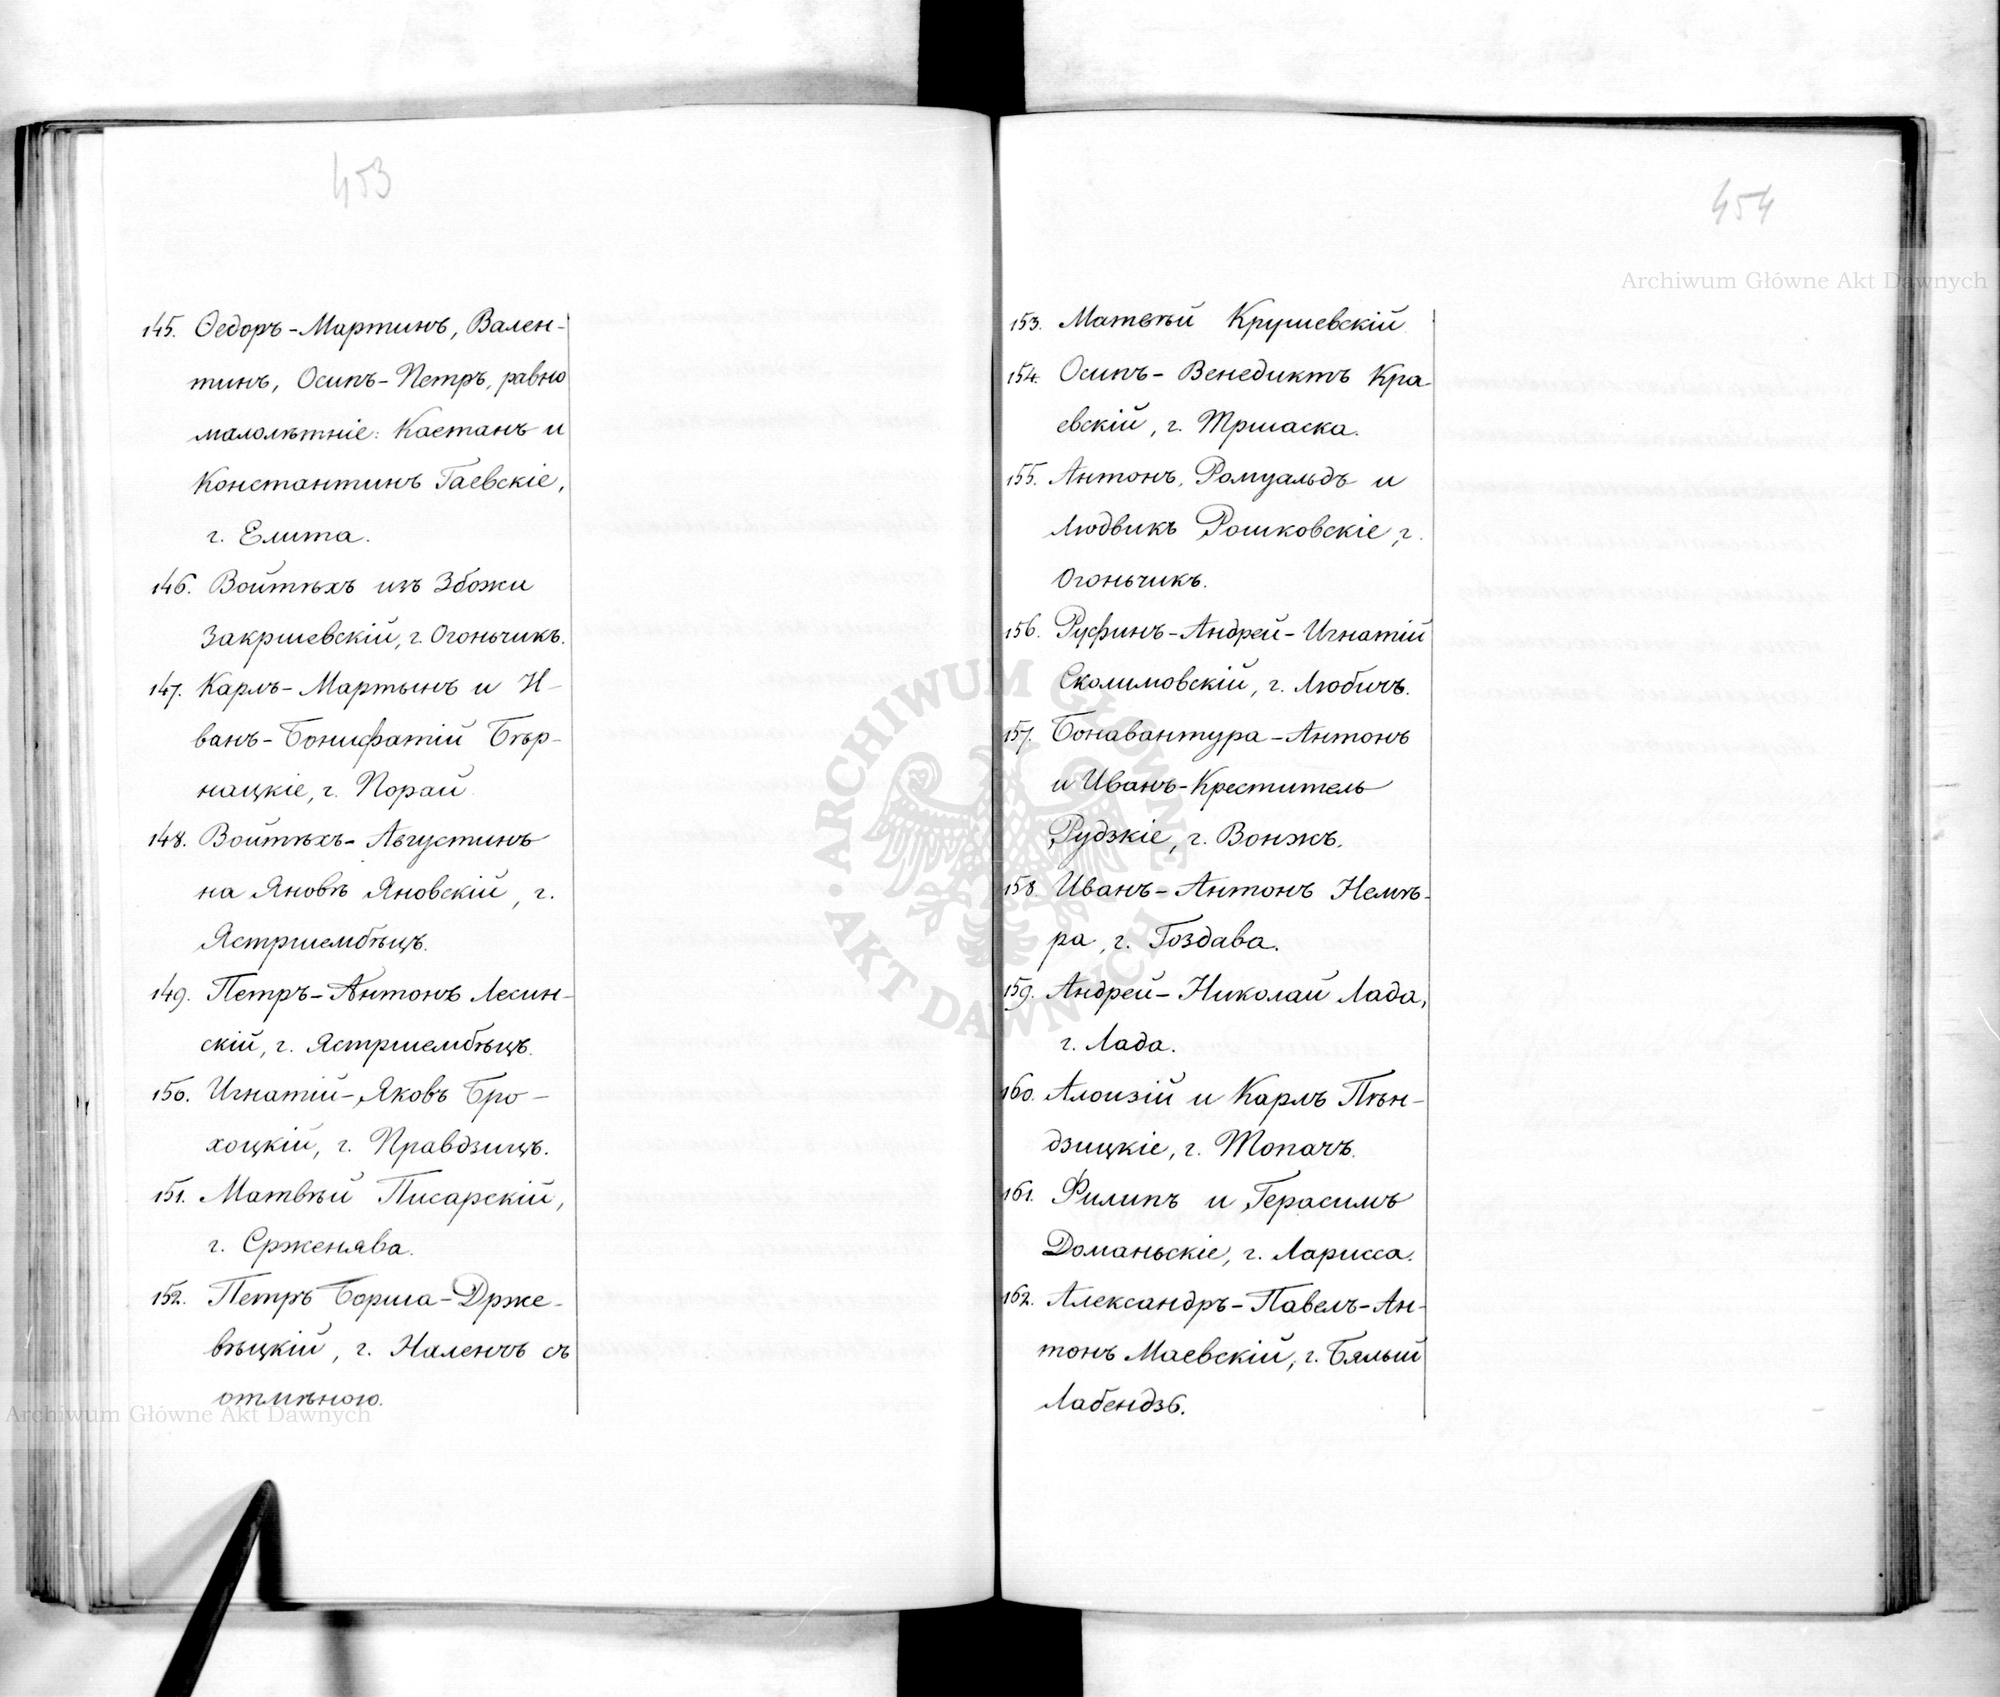 453
145. Ѳедоръ-Мартинъ, Вален-
тинъ, Осипъ-Петръ, равно
малолѣтніе: Каетанъ и
Константинъ Гаевскіе,
г. Елита.
146. Войтѣхъ изъ Збожи
Закршевскій, г. Огоньчикъ.
147. Карлъ-Мартынъ и И-
ванъ-Бонифатій Бѣр-
нацкіе, г. Порай.
148. Войтѣхъ-Августинъ
на Яновѣ Яновскій, г.
Ястршембѣцъ.
149. Петръ-Антонъ Лесин-
скій, г. Ястршембѣцъ.
150. Игнатій-Яковъ Бро-
хоцкій, г. Правдзицъ.
151. Матвѣй Писарскій,
г. Срженява.
152. Петръ Борша-Држе-
вѣцкій, г. Наленчъ съ
отмѣною.
454
153. Матвѣй Крушевскій
154. Осипъ-Венедиктъ Кра-
евскій, г. Тршаска.
155. Антонъ, Ромуальдъ и
Людвикъ Рошковскіе, г.
Огоньчикъ.
156. Руфинъ-Андрей-Игнатій
Сколимовскій, г. Любичъ.
157. Бонавантура-Антонъ
и Иванъ-Креститель
Рудзкіе, г. Вонжъ.
158. Иванъ-Антонъ Немѣ-
ра, г. Гоздава.
159. Андрей-Николай Лада,
г. Лада.
160. Алоизій и Карлъ Пѣн-
дзицкіе, г. Топачъ.
161. Филипъ и Герасимъ
Доманьскіе, г. Ларисса.
162. Александръ-Павелъ-Ан-
тонъ Маевскій, г. Бялый
Лабендзь.
Archiwum Główne Akt Dawnych
ARCHIWUM GŁÓWNE AKT DAWNYCH
Archiwum Główne Akt Dawnych